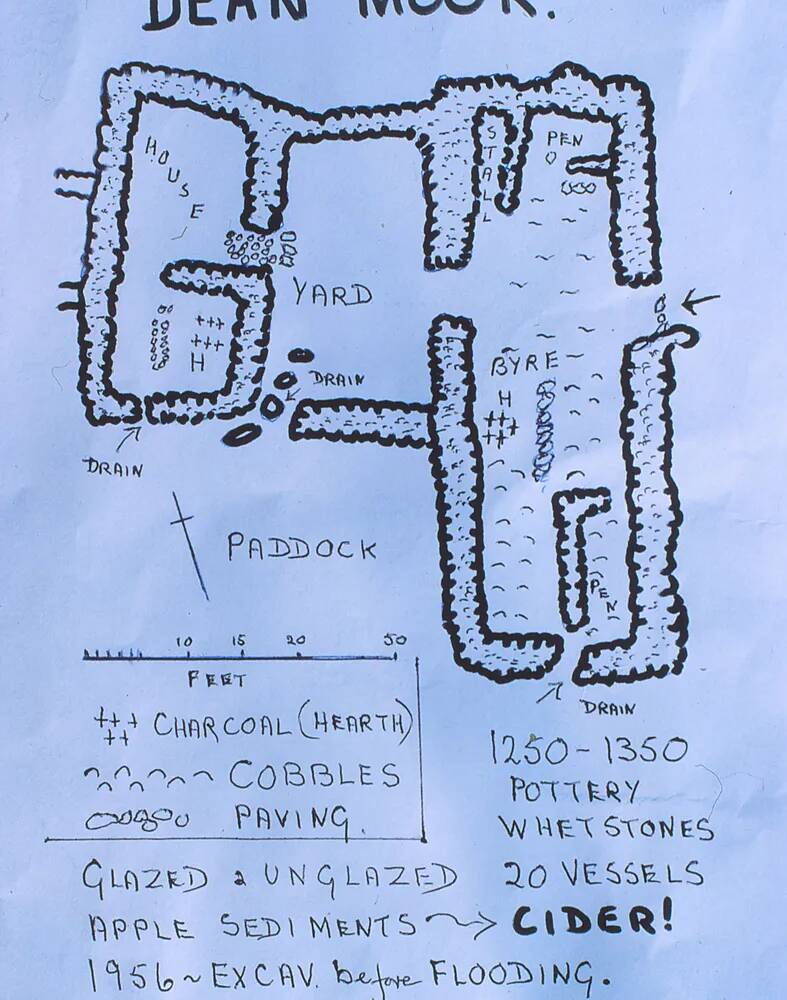 DEAN MOOR.
HOUSE
STALL
PEN
YARD
BYRE
H
H
DRAIN
DRAIN
PADDOCK
PEN
10 15 20 50
FEET
DRAIN
+++ CHARCOAL (HEARTH)
COBBLES
PAVING.
1250-1350
POTTERY
WHETSTONES
GLAZED & UNGLAZED 20 VESSELS
APPLE SEDIMENTS → CIDER!
1956 ~ EXCAV. before FLOODING.